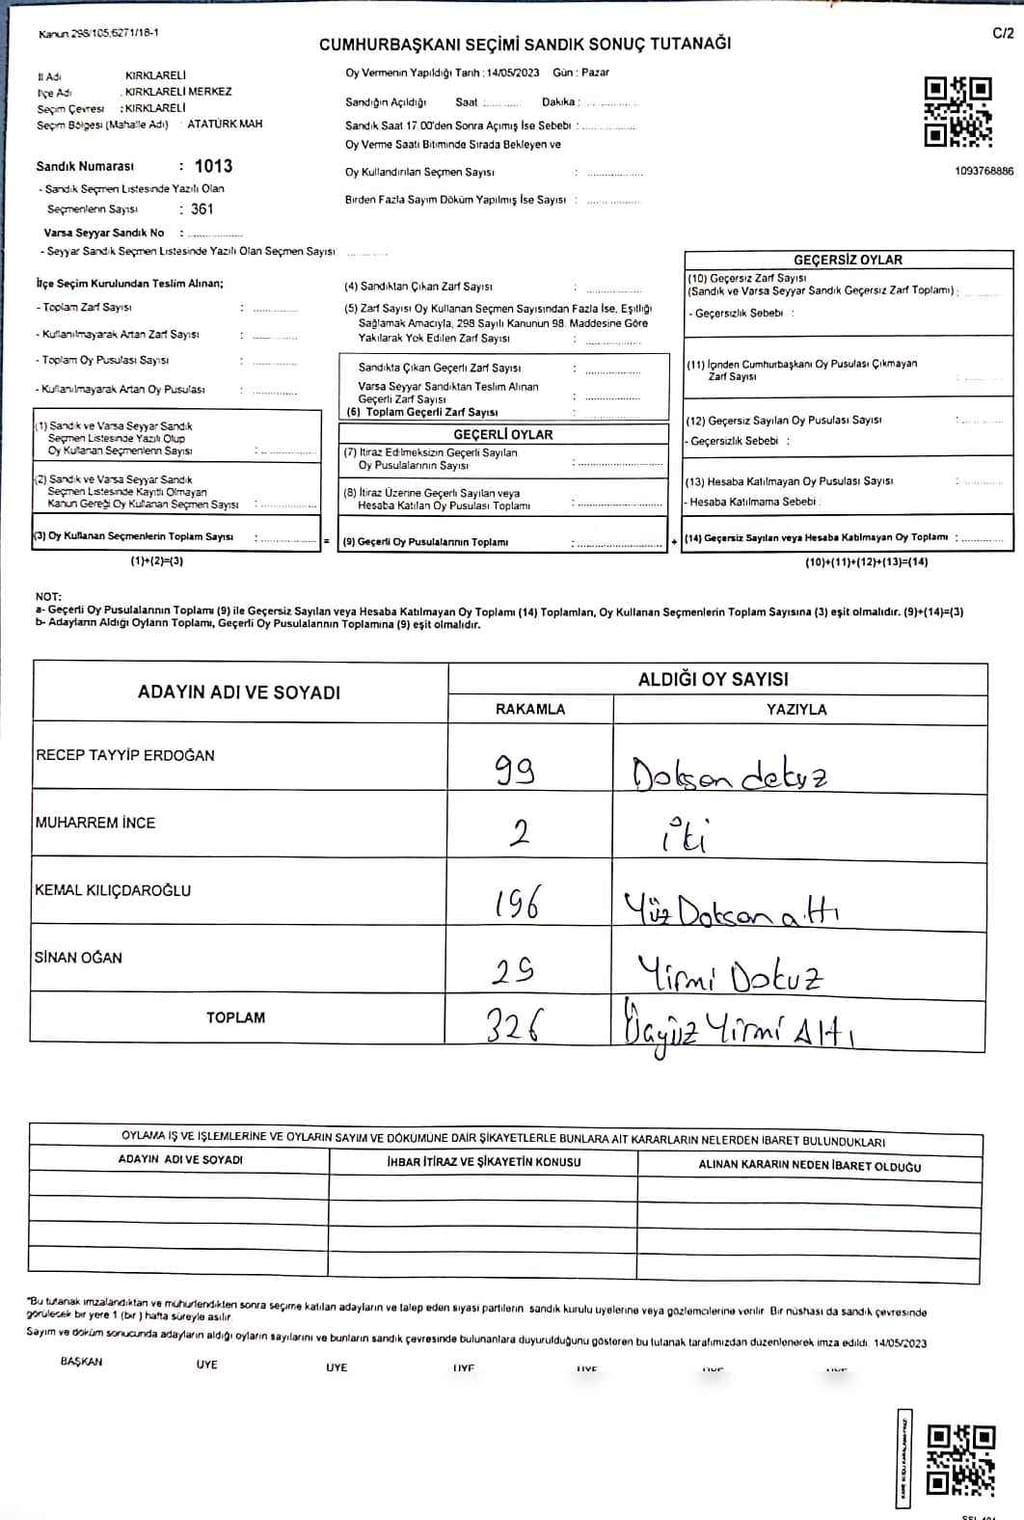 Kanun 298/105;6271/18-1
C/2
CUMHURBAŞKANI SEÇİMİ SANDIK SONUÇ TUTANAĞI
İl Adı KIRKLARELİ
İlçe Adı : KIRKLARELİ MERKEZ
Seçim Çevresi : KIRKLARELİ
Seçim Bölgesi (Mahalle Adı) ATATÜRK MAH
Sandık Numarası : 1013
- Sandık Seçmen Listesinde Yazılı Olan
Seçmenlerin Sayısı : 361
Varsa Seyyar Sandık No : ..............
- Seyyar Sandık Seçmen Listesinde Yazılı Olan Seçmen Sayısı ..............
Oy Vermenin Yapıldığı Tarih : 14/05/2023 Gün : Pazar
Sandığın Açıldığı Saat : ........... Dakika : ..............
Sandık Saat 17.00'den Sonra Açımış İse Sebebi : ..............
Oy Verme Saati Bitiminde Sırada Bekleyen ve
Oy Kullandırılan Seçmen Sayısı : ..............
Birden Fazla Sayım Döküm Yapılmış İse Sayısı : ..............
1093768886
İlçe Seçim Kurulundan Teslim Alınan;
- Toplam Zarf Sayısı : ..............
- Kullanılmayarak Artan Zarf Sayısı : ..............
- Toplam Oy Pusulası Sayısı : ..............
- Kullanılmayarak Artan Oy Pusulası : ..............
(1) Sandık ve Varsa Seyyar Sandık
Seçmen Listesinde Yazılı Olup
Oy Kullanan Seçmenlerin Sayısı : ..............
(2) Sandık ve Varsa Seyyar Sandık
Seçmen Listesinde Kayıtlı Olmayan
Kanun Gereği Oy Kullanan Seçmen Sayısı : ..............
(3) Oy Kullanan Seçmenlerin Toplam Sayısı : .............. =
(1)+(2)=(3)
(4) Sandıktan Çıkan Zarf Sayısı : ..............
(5) Zarf Sayısı Oy Kullanan Seçmen Sayısından Fazla İse, Eşitliği
Sağlamak Amacıyla, 298 Sayılı Kanunun 98. Maddesine Göre
Yakılarak Yok Edilen Zarf Sayısı : ..............
Sandıkta Çıkan Geçerli Zarf Sayısı : ..............
Varsa Seyyar Sandıktan Teslim Alınan
Geçerli Zarf Sayısı : ..............
(6) Toplam Geçerli Zarf Sayısı : ..............
GEÇERLİ OYLAR
(7) İtiraz Edilmeksizin Geçerli Sayılan
Oy Pusulalarının Sayısı : ..............
(8) İtiraz Üzerine Geçerli Sayılan veya
Hesaba Katılan Oy Pusulası Toplamı : ..............
(9) Geçerli Oy Pusulalarının Toplamı : .............. +
GEÇERSİZ OYLAR
(10) Geçersiz Zarf Sayısı
(Sandık ve Varsa Seyyar Sandık Geçersiz Zarf Toplamı) : ..............
- Geçersizlik Sebebi :
(11) İçinden Cumhurbaşkanı Oy Pusulası Çıkmayan
Zarf Sayısı : ..............
(12) Geçersiz Sayılan Oy Pusulası Sayısı : ..............
- Geçersizlik Sebebi :
(13) Hesaba Katılmayan Oy Pusulası Sayısı : ..............
- Hesaba Katılmama Sebebi :
(14) Geçersiz Sayılan veya Hesaba Katılmayan Oy Toplamı : ..............
(10)+(11)+(12)+(13)=(14)
NOT:
a- Geçerli Oy Pusulalarının Toplamı (9) ile Geçersiz Sayılan veya Hesaba Katılmayan Oy Toplamı (14) Toplamları, Oy Kullanan Seçmenlerin Toplam Sayısına (3) eşit olmalıdır. (9)+(14)=(3)
b- Adayların Aldığı Oyların Toplamı, Geçerli Oy Pusulalarının Toplamına (9) eşit olmalıdır.
ADAYIN ADI VE SOYADI ALDIĞI OY SAYISI
RAKAMLA YAZIYLA
RECEP TAYYİP ERDOĞAN 99 Doksan dokuz
MUHARREM İNCE 2 iki
KEMAL KILIÇDAROĞLU 196 Yüz Doksan altı
SİNAN OĞAN 29 Yirmi Dokuz
TOPLAM 326 Üçyüz Yirmi Altı
OYLAMA İŞ VE İŞLEMLERİNE VE OYLARIN SAYIM VE DÖKÜMÜNE DAİR ŞİKAYETLERLE BUNLARA AİT KARARLARIN NELERDEN İBARET BULUNDUKLARI
ADAYIN ADI VE SOYADI İHBAR İTİRAZ VE ŞİKAYETİN KONUSU ALINAN KARARIN NEDEN İBARET OLDUĞU
*Bu tutanak imzalandıktan ve mühürlendikten sonra seçime katılan adayların ve talep eden siyasi partilerin sandık kurulu üyelerine veya gözlemcilerine verilir. Bir nüshası da sandık çevresinde
görülecek bir yere 1 (bir) hafta süreyle asılır.
Sayım ve döküm sonucunda adayların aldığı oyların sayılarını ve bunların sandık çevresinde bulunanlara duyurulduğunu gösteren bu tutanak tarafımızdan düzenlenerek imza edildi. 14/05/2023
BAŞKAN ÜYE ÜYE ÜYE ÜYE